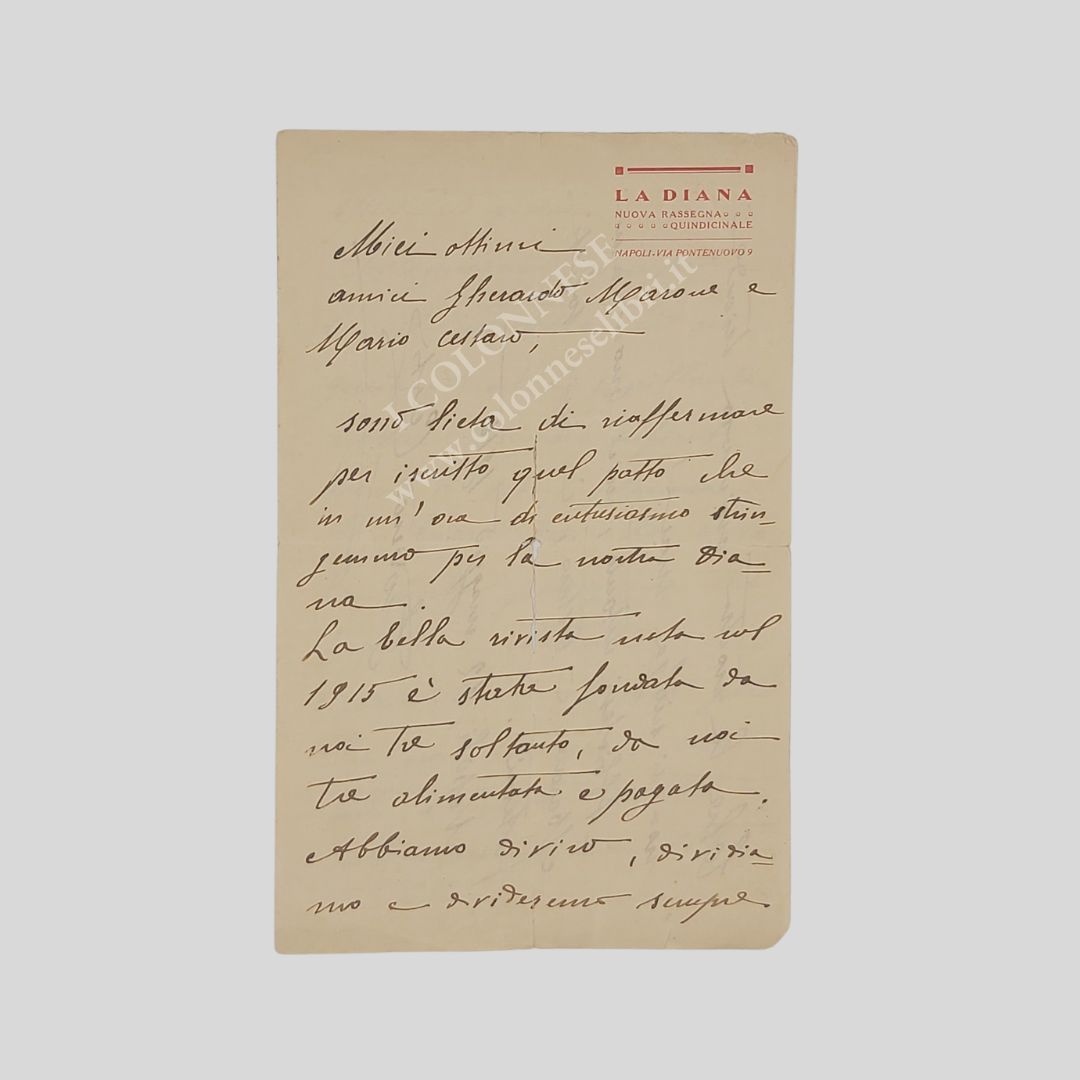 LA DIANA
NUOVA RASSEGNA
QUINDICINALE
NAPOLI - VIA PONTENUOVO 9
Miei ottimi
amici Gherardo Marone e
Mario Cestaro,
sono lieta di riaffermare
per iscritto quel patto che
in un' ora di entusiasmo strin-
gemmo per la nostra Dia=
na.
La bella rivista nata nel
1915 è stata fondata da
noi tre soltanto, da noi
tre alimentata e pagata.
Abbiamo diviso, dividia=
mo e divideremo sempre
I COLONNESE
www.colonneselibri.it